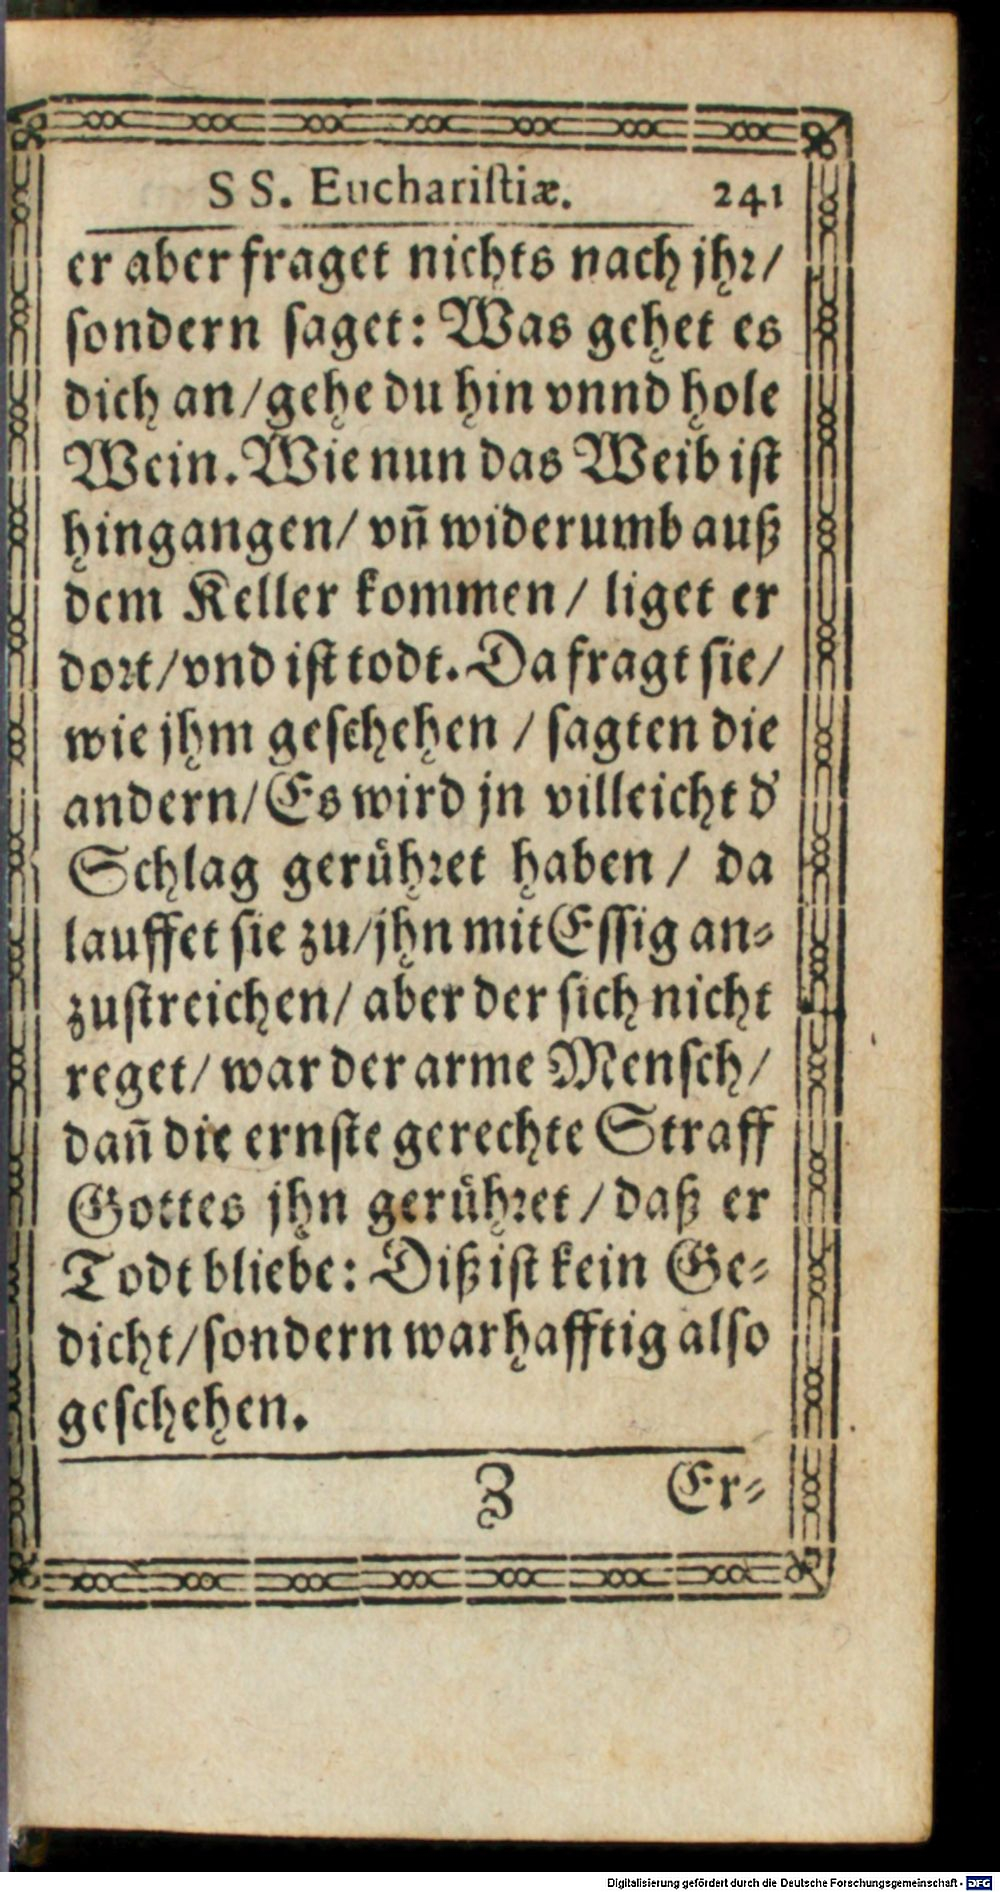 SS. Euchariſtiæ. 241
er aber fraget nichts nach jhꝛ/
ſondern ſaget: Was gehet es
dich an/gehe du hin vnnd hole
Wein. Wie nun das Weib iſt
hingangen/ vn̄ widerumb auß
dem Keller kommen/ liget er
doꝛt/vnd iſt todt. Da fragt ſie/
wie jhm geſchehen / ſagten die
andern/ Es wird jn villeicht d'
Schlag gerühꝛet haben / da
lauffet ſie zu/jhn mit Eſſig an⸗
zuſtreichen/ aber der ſich nicht
reget/ war der arme Menſch/
dan̄ die ernſte gerechte Straff
Gottes jhn gerühꝛet/ daß er
Todt bliebe: Diß iſt kein Ge⸗
dicht/ſondern warhafftig alſo
geſchehen.
Z Er⸗
Digitalisierung gefördert durch die Deutsche Forschungsgemeinschaft - DFG